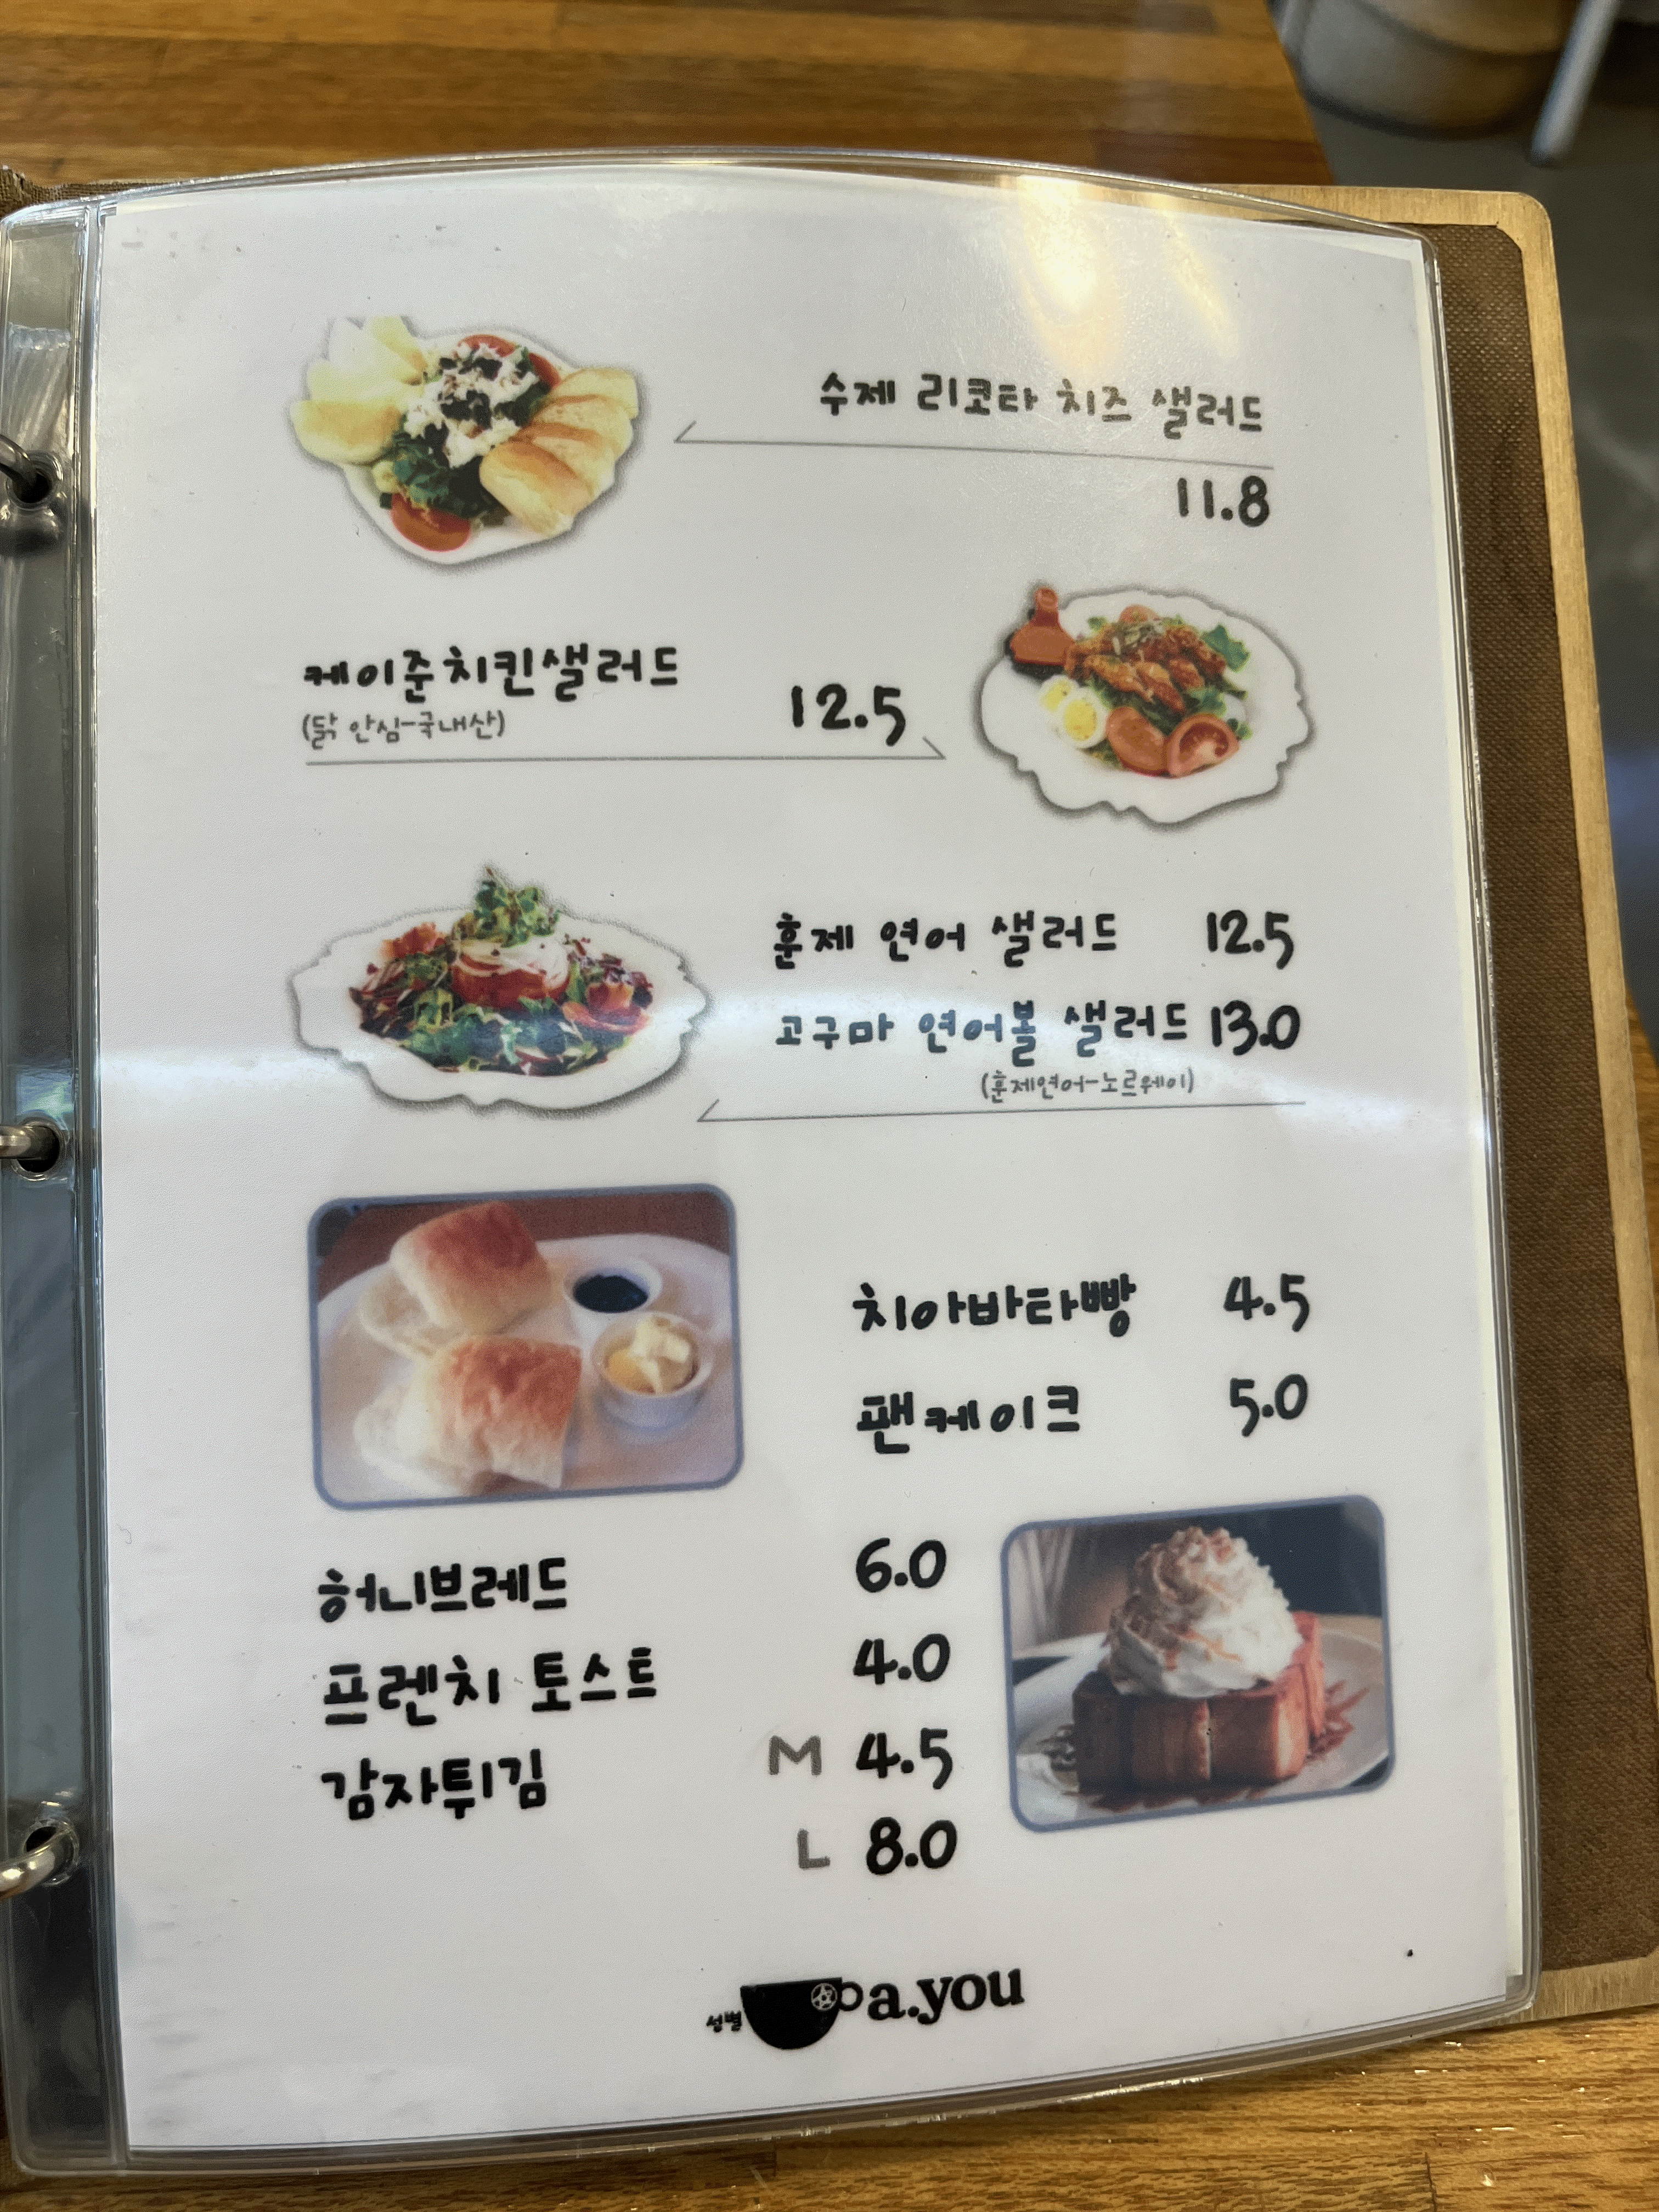 수제 리코타 치즈 샐러드
11.8
케이준치킨샐러드 12.5
(닭 안심-국내산)
훈제 연어 샐러드 12.5
고구마 연어볼 샐러드 13.0
(훈제연어-노르웨이)
치아바타빵 4.5
팬케이크 5.0
허니브레드 6.0
프렌치 토스트 4.0
감자튀김 M 4.5
L 8.0
성별 a.you